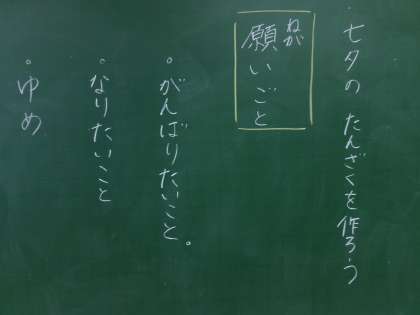 ・七夕の たんざくを作ろう
願いごと
ねが
・がんばりたいこと。
・なりたいこと
・ゆめ